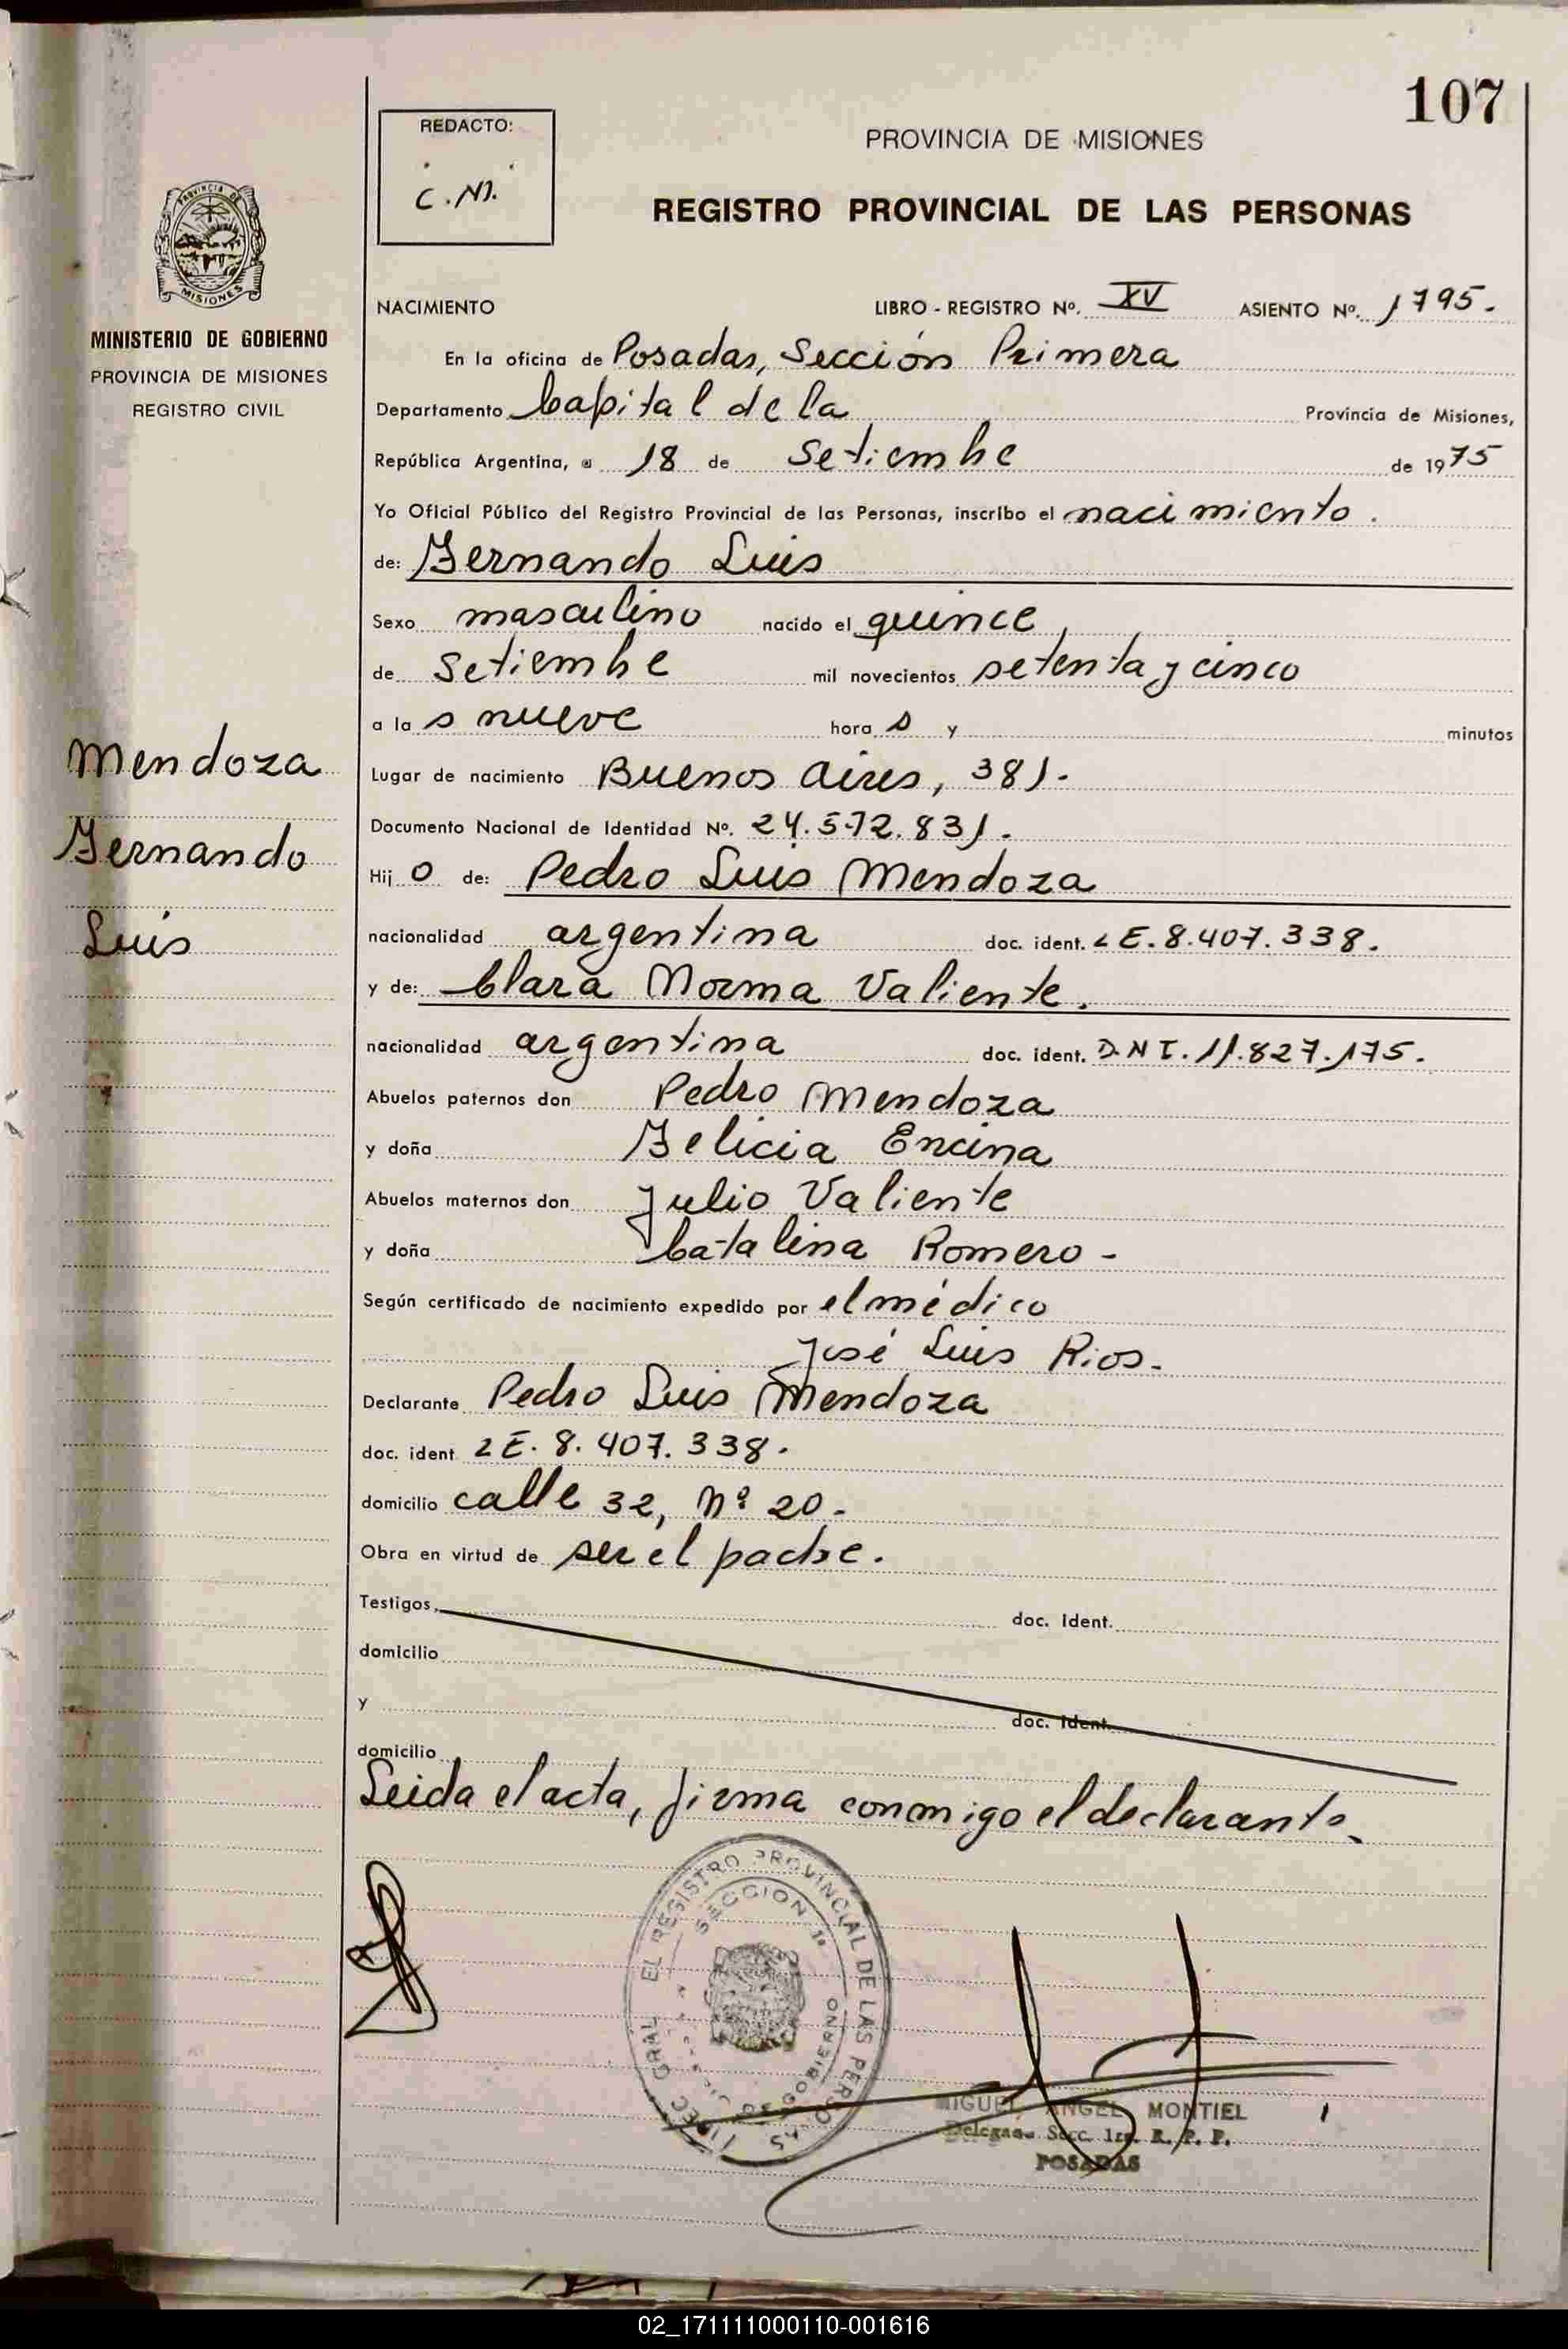 107
REDACTO:
C.M.
PROVINCIA DE MISIONES
REGISTRO PROVINCIAL DE LAS PERSONAS
PROVINCIA DE
MISIONES
MINISTERIO DE GOBIERNO
PROVINCIA DE MISIONES
REGISTRO CIVIL
Mendoza
Fernando
Luis
NACIMIENTO LIBRO - REGISTRO Nº. XV ASIENTO Nº. 1795.
En la oficina de Posadas, Sección Primera
Departamento Capital de la Provincia de Misiones,
República Argentina, a 18 de Setiembre de 1975
Yo Oficial Público del Registro Provincial de las Personas, inscribo el nacimiento.
de: Fernando Luis
Sexo masculino nacido el quince
de Setiembre mil novecientos setenta y cinco
a las nueve horas y minutos
Lugar de nacimiento Buenos Aires, 381.
Documento Nacional de Identidad Nº. 24.572.831.
Hijo de: Pedro Luis Mendoza
nacionalidad argentina doc. ident. LE.8.407.338.
y de: Clara Norma Valiente.
nacionalidad argentina doc. ident. D.N.I. 11.827.175.
Abuelos paternos don Pedro Mendoza
y doña Felicia Encina
Abuelos maternos don Julio Valiente
y doña Catalina Romero -
Según certificado de nacimiento expedido por el médico
José Luis Rios.
Declarante Pedro Luis Mendoza
doc. ident LE. 8. 407. 338.
domicilio calle 32, Nº 20.
Obra en virtud de ser el padre.
Testigos, doc. ident.
domicilio
y doc. ident.
domicilio
Leida el acta, firma conmigo el declarante.
DIREC GRAL EL REGISTRO PROVINCIAL DE LAS PERSONAS
SECCION 1a
GOBIERNO
MIGUEL ANGEL MONTIEL
Delegado Secc. 1ra. R. P. P.
POSADAS
02_171111000110-001616